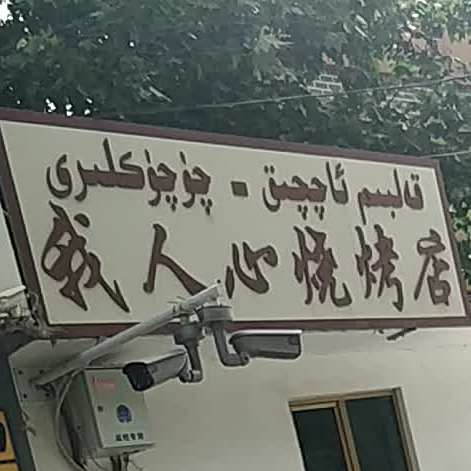 قەلبىم ئاچچىق - چۈچۈكلىرى
我人心烧烤店
监控专用